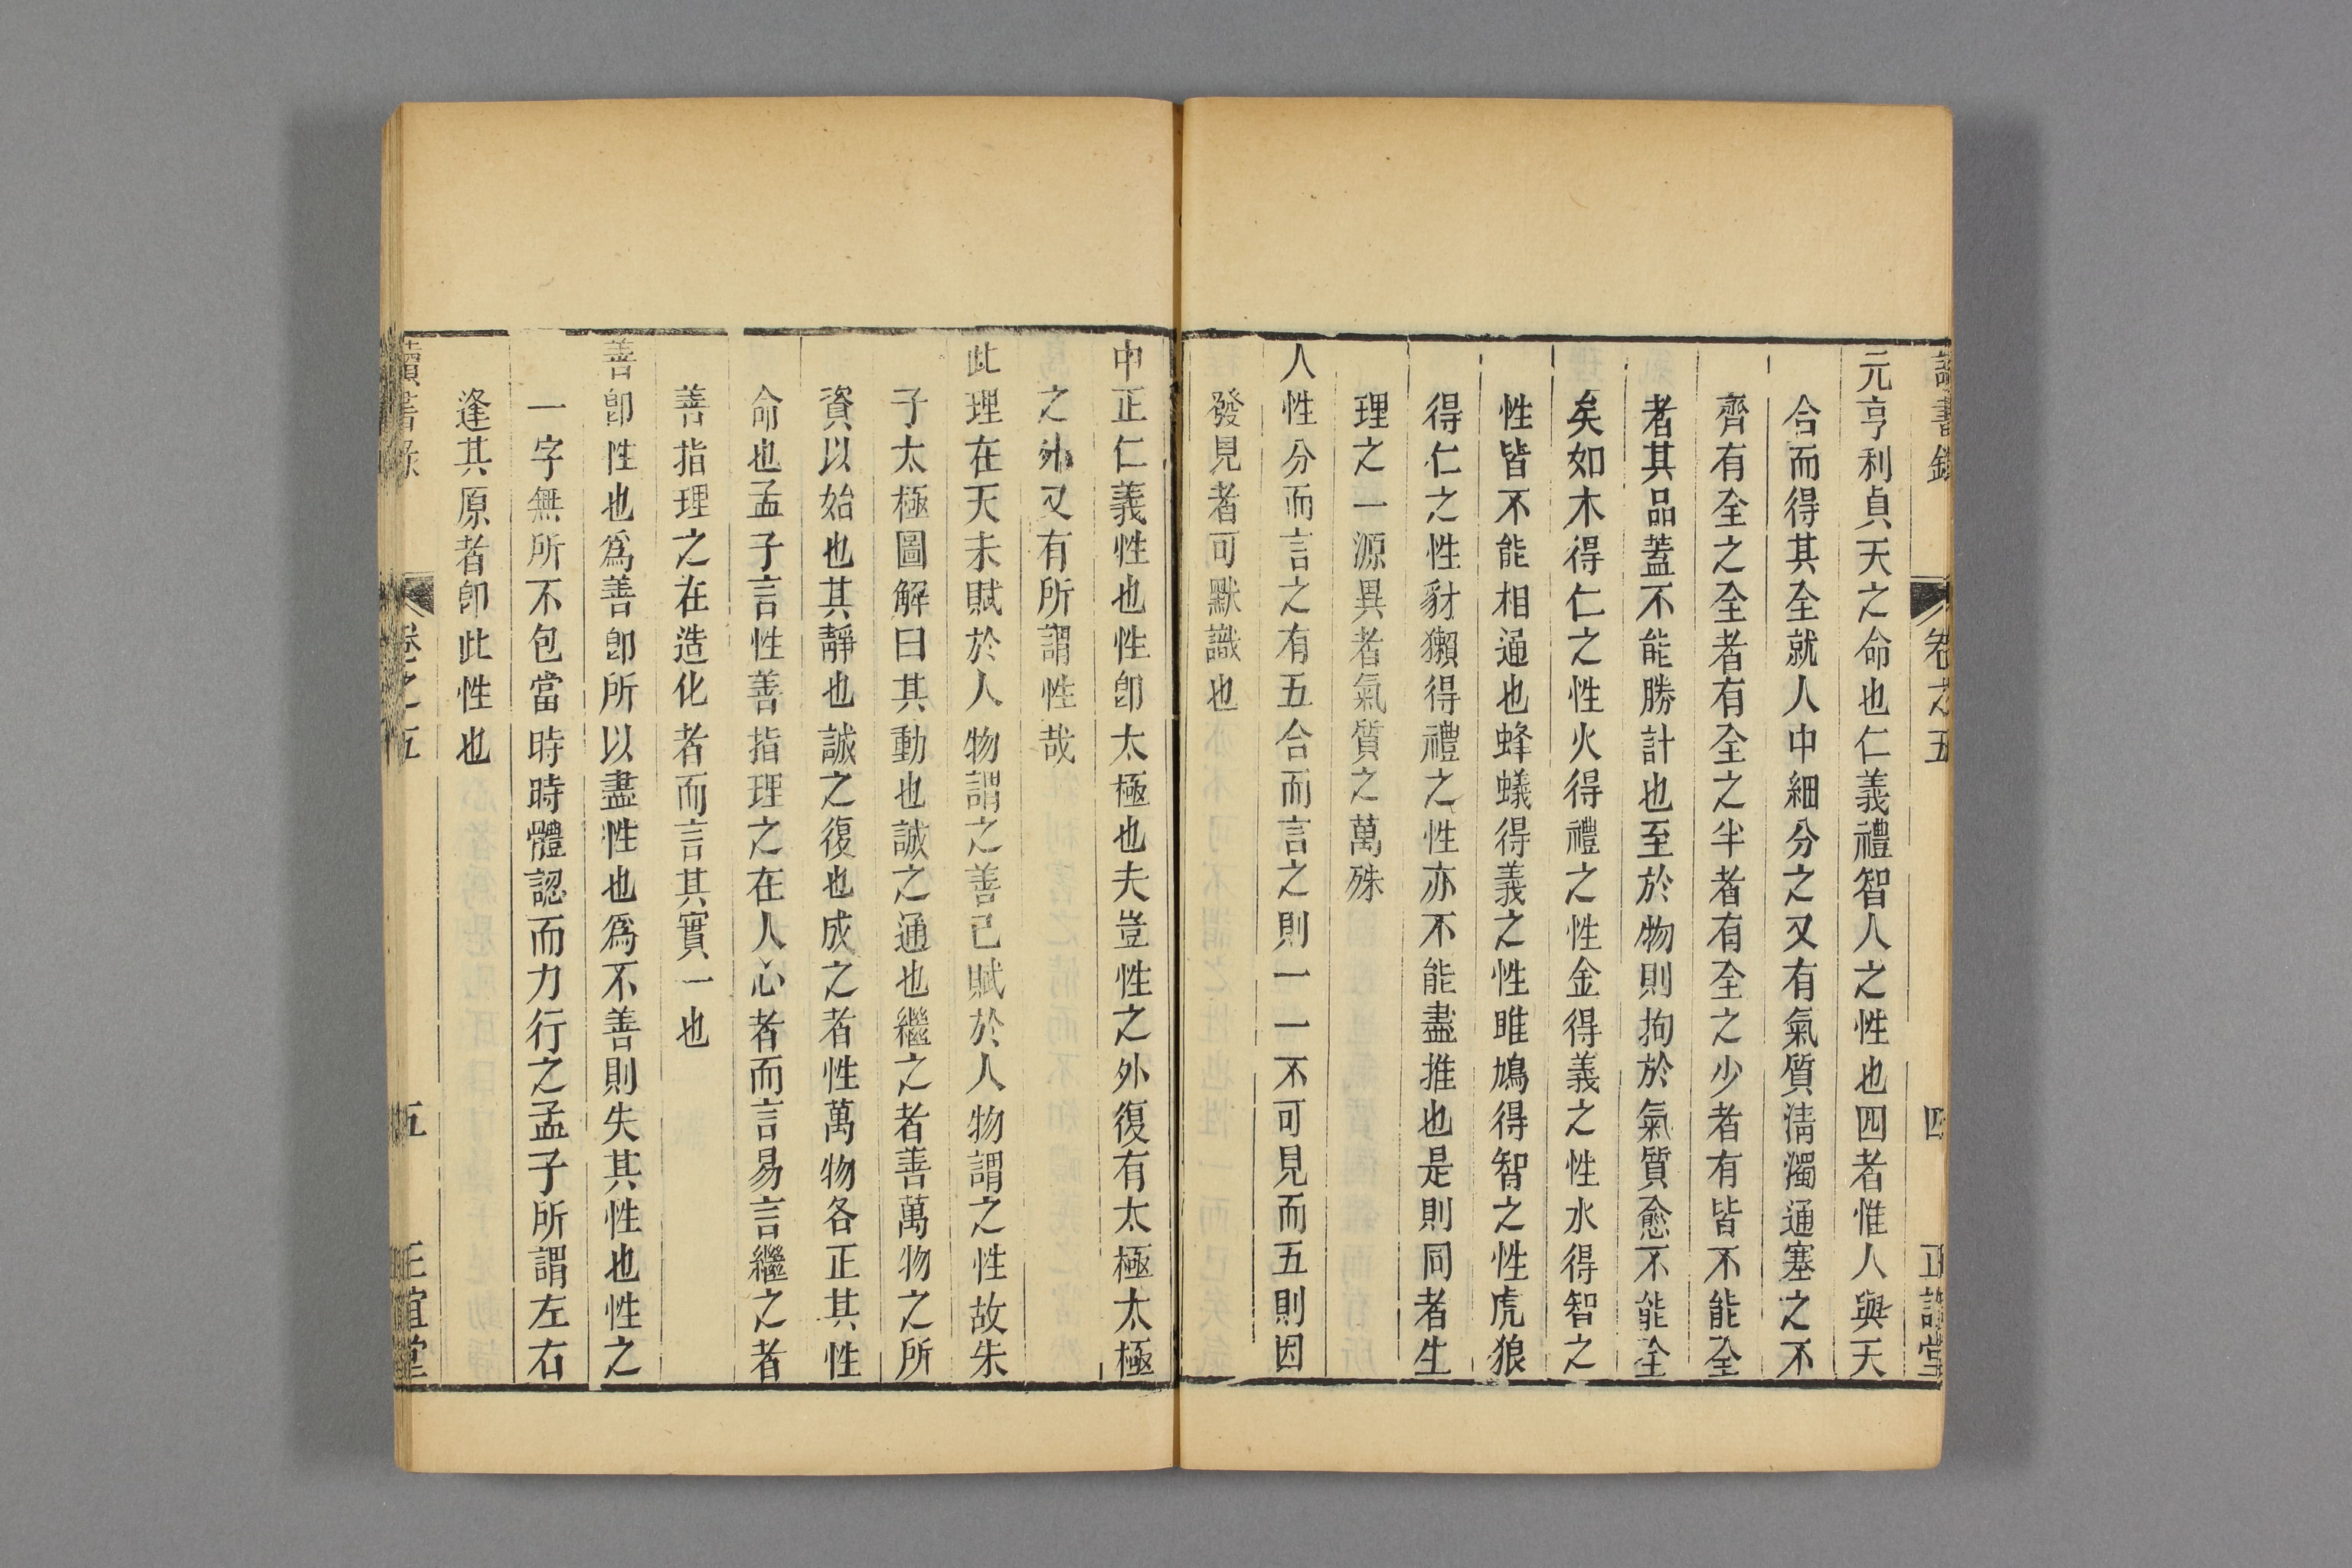 讀書錄 卷之五 四 正誼堂
元亨利貞天之命也仁義禮智人之性也四者惟人與天
合而得其全就人中細分之又有氣質淸濁通塞之不
齊有全之全者有全之半者有全之少者有皆不能全
者其品蓋不能勝計也至於物則拘於氣質愈不能全
矣如木得仁之性火得禮之性金得義之性水得智之
性皆不能相通也蜂蟻得義之性雎鳩得智之性虎狼
得仁之性豺獺得禮之性亦不能盡推也是則同者生
理之一源異者氣質之萬殊
人性分而言之有五合而言之則一一不可見而五則因
發見者可默識也
中正仁義性也性卽太極也夫豈性之外復有太極太極
之外又有所謂性哉
此理在天未賦於人物謂之善已賦於人物謂之性故朱
子太極圖解曰其動也誠之通也繼之者善萬物之所
資以始也其靜也誠之復也成之者性萬物各正其性
命也孟子言性善指理之在人心者而言易言繼之者
善指理之在造化者而言其實一也
善卽性也爲善卽所以盡性也爲不善則失其性也性之
一字無所不包當時時體認而力行之孟子所謂左右
逢其原者卽此性也
讀書錄 卷之五 五 正誼堂